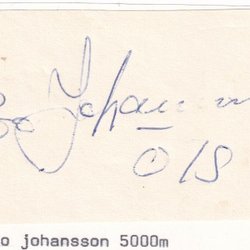 Bo Johansson
OIS
o johansson 5000m